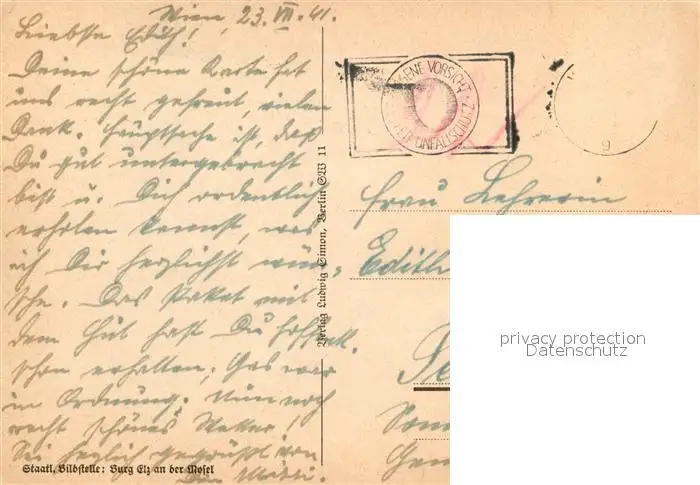 Wien, 23. VII. 41.
Liebste Edith!
Deine schöne Karte hat
uns recht gefreut, vielen
Dank. Hauptsache ist, daß
Du gut untergebracht
bist u. Dich ordentlich
erholen kannst, was
ich Dir herzlichst wün-
sche. Das Paket mit
dem Hut hast Du hoffentl.
schon erhalten; Gas war
in Ordnung. Nun noch
recht schönes Wetter!
Sei herzlich gegrüßt von
Staatl. Bildstelle: Burg Elz an der Mosel
Verlag Ludwig Simon, Berlin SW 11
EIGENE VORSICHT
UNFALLSCHUTZ
9
Frau Lehrerin
Edith
privacy protection
Datenschutz